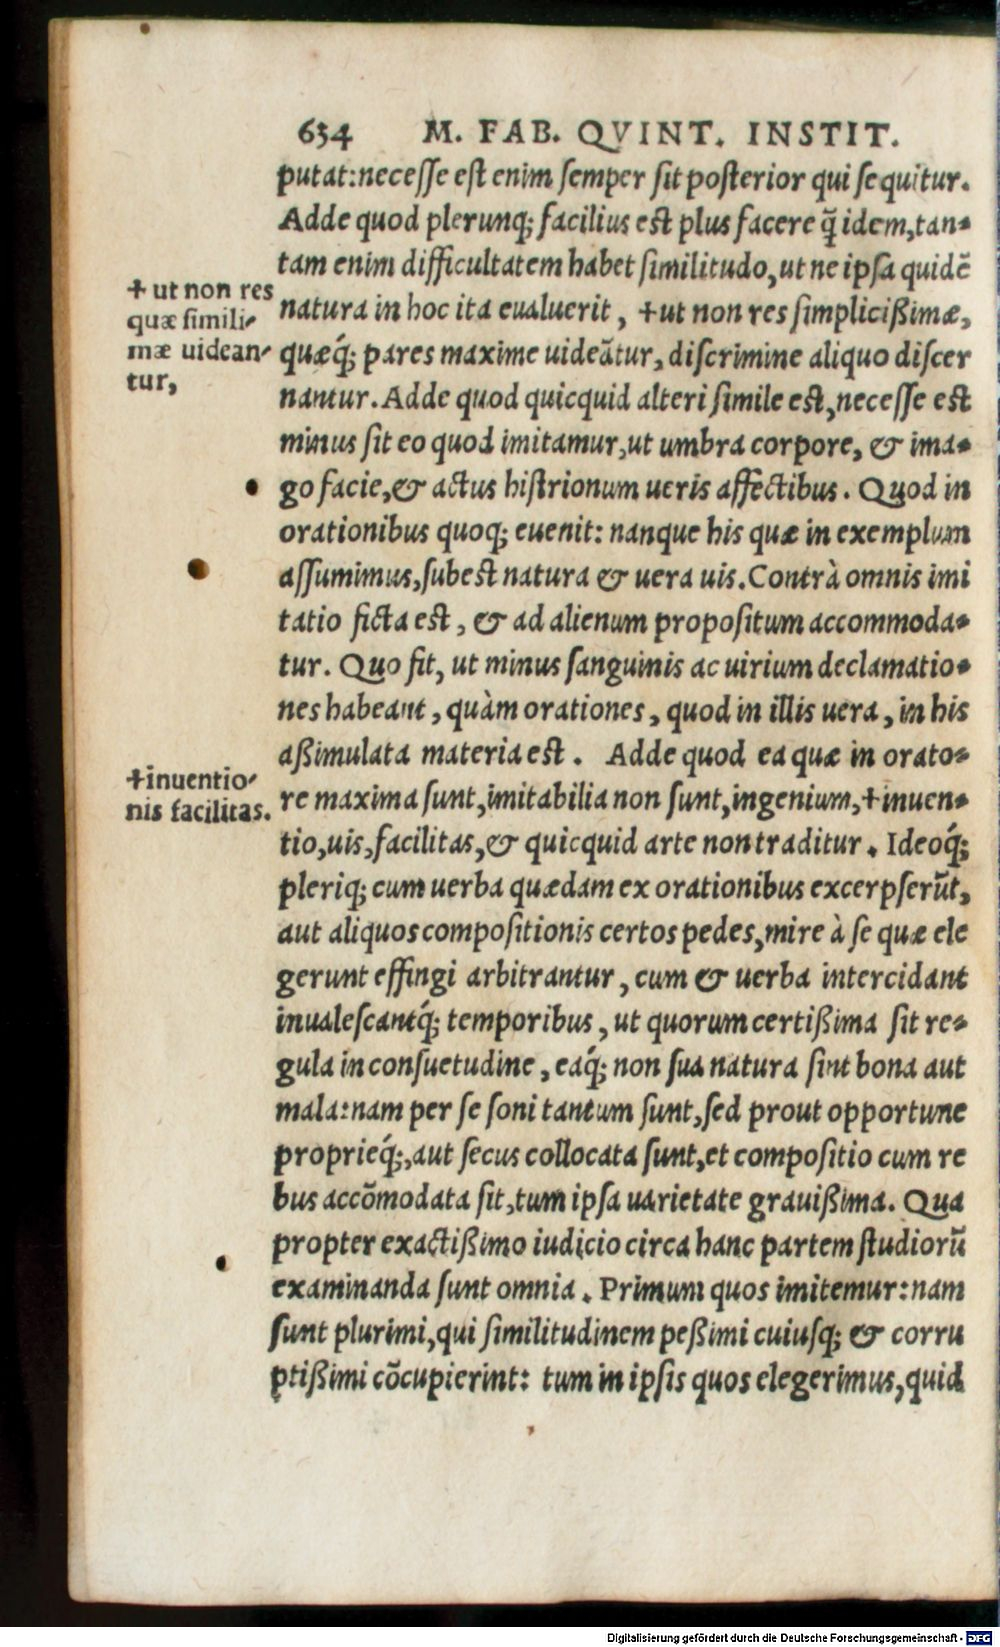 634 M. FAB. QVINT. INSTIT.
putat: necesse est enim semper sit posterior qui sequitur.
Adde quod plerunq; facilius est plus facere q̃ idem, tan-
tam enim difficultatem habet similitudo, ut ne ipsa quidē
natura in hoc ita eualuerit, +ut non res simplicißimæ,
quæq́; pares maxime uideātur, discrimine aliquo discer
nantur. Adde quod quicquid alteri simile est, necesse est
minus sit eo quod imitamur, ut umbra corpore, & ima-
go facie, & actus histrionum ueris affectibus. Quod in
orationibus quoq; euenit: nanque his quæ in exemplum
assumimus, subest natura & uera uis. Contrà omnis imi
tatio ficta est, & ad alienum propositum accommoda-
tur. Quo fit, ut minus sanguinis ac uirium declamatio-
nes habeant, quàm orationes, quod in illis uera, in his
aßimulata materia est. Adde quod ea quæ in orato-
re maxima sunt, imitabilia non sunt, ingenium, +inuen-
tio, uis, facilitas, & quicquid arte non traditur. Ideoq́;
pleriq; cum uerba quædam ex orationibus excerpserūt,
aut aliquos compositionis certos pedes, mire à se quæ ele
gerunt effingi arbitrantur, cum & uerba intercidant
inualescantq́; temporibus, ut quorum certißima sit re-
gula in consuetudine, eaq́; non sua natura sint bona aut
mala: nam per se soni tantum sunt, sed prout opportune
proprieq́;, aut secus collocata sunt, et compositio cum re
bus accōmodata sit, tum ipsa uarietate grauißima. Qua
propter exactißimo iudicio circa hanc partem studiorū
examinanda sunt omnia. Primum quos imitemur: nam
sunt plurimi, qui similitudinem peßimi cuiusq; & corru
ptißimi cōcupierint: tum in ipsis quos elegerimus, quid
+ ut non res
quæ simili-
mæ uidean-
tur,
+inuentio-
nis facilitas.
Digitalisierung gefördert durch die Deutsche Forschungsgemeinschaft - DFG